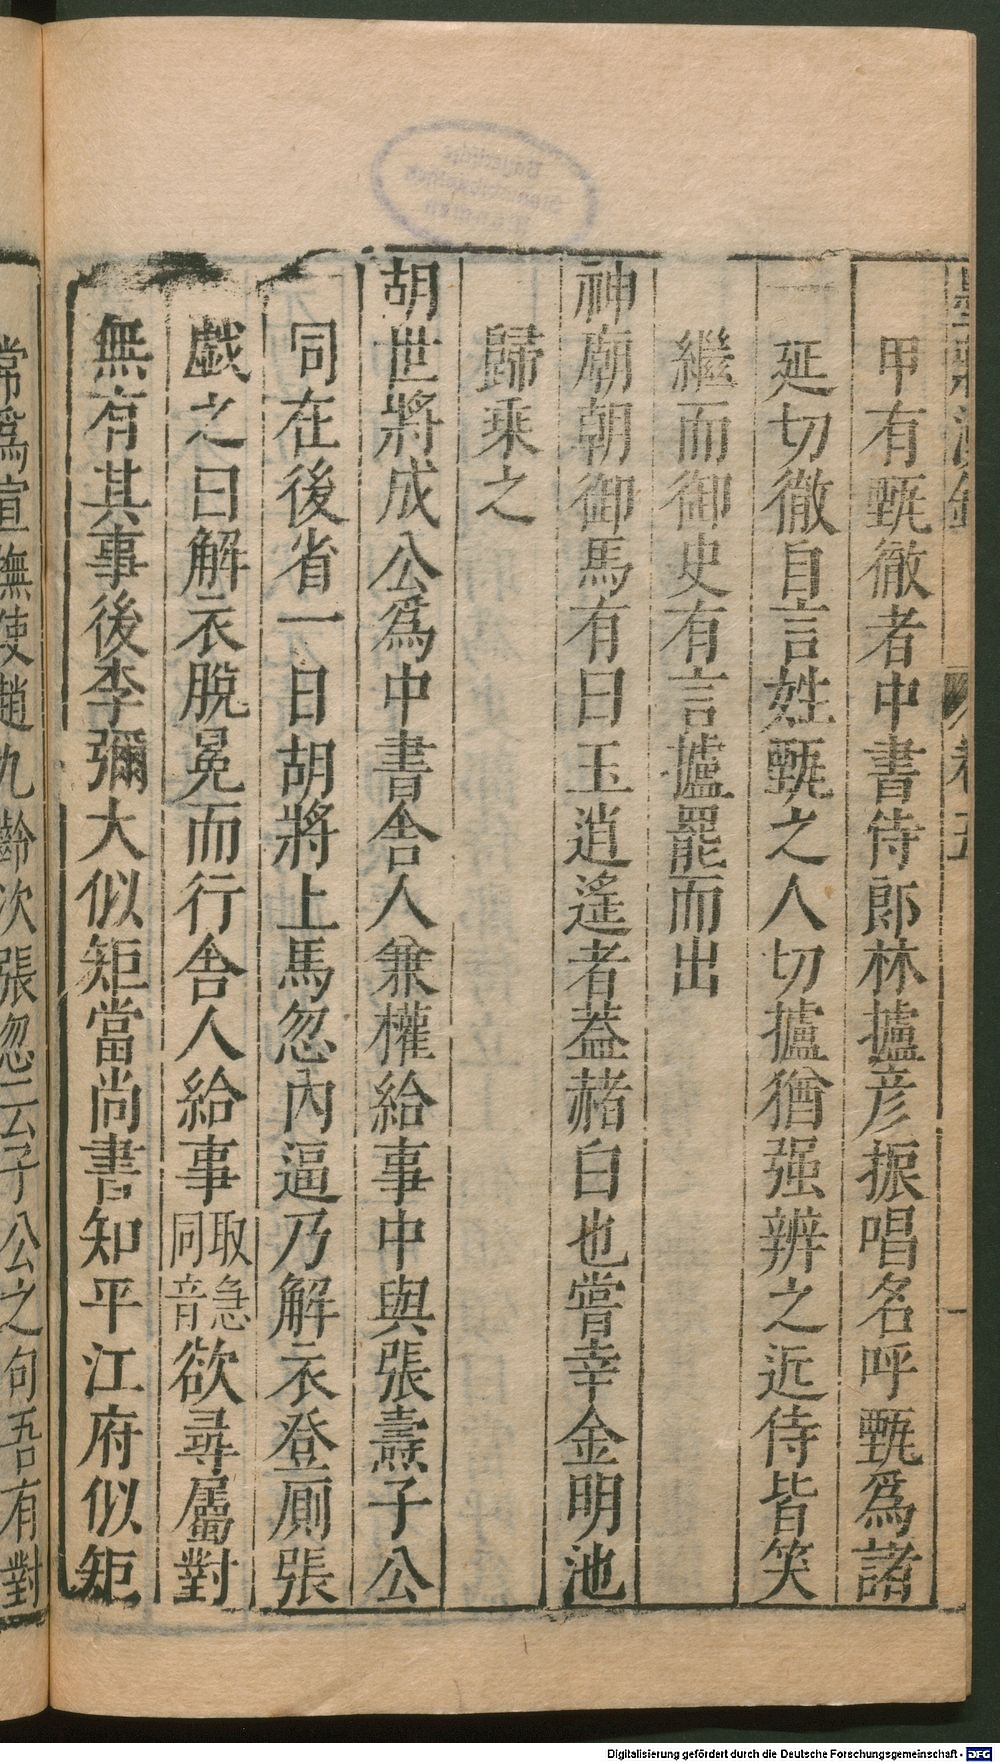 卷五
甲有甄徹者中書侍郎林攄彦振唱名呼甄爲諸
延切徹自言姓甄之人切攄猶强辨之近侍皆笑
繼而御史有言攄罷而出
神廟朝御馬有曰玉逍遙者蓋赭白也嘗幸金明池
歸乘之
胡世將成公爲中書舍人兼權給事中與張燾子公
同在後省一日胡將上馬忽內逼乃解衣登厠張
戯之曰解衣脫冕而行舍人給事取急同音欲尋屬對
無有其事後李彌大似矩當尚書知平江府似矩
常爲宣撫使趙九齡次張忽云子公之句吾有對
Digitalisierung gefördert durch die Deutsche Forschungsgemeinschaft - DFG